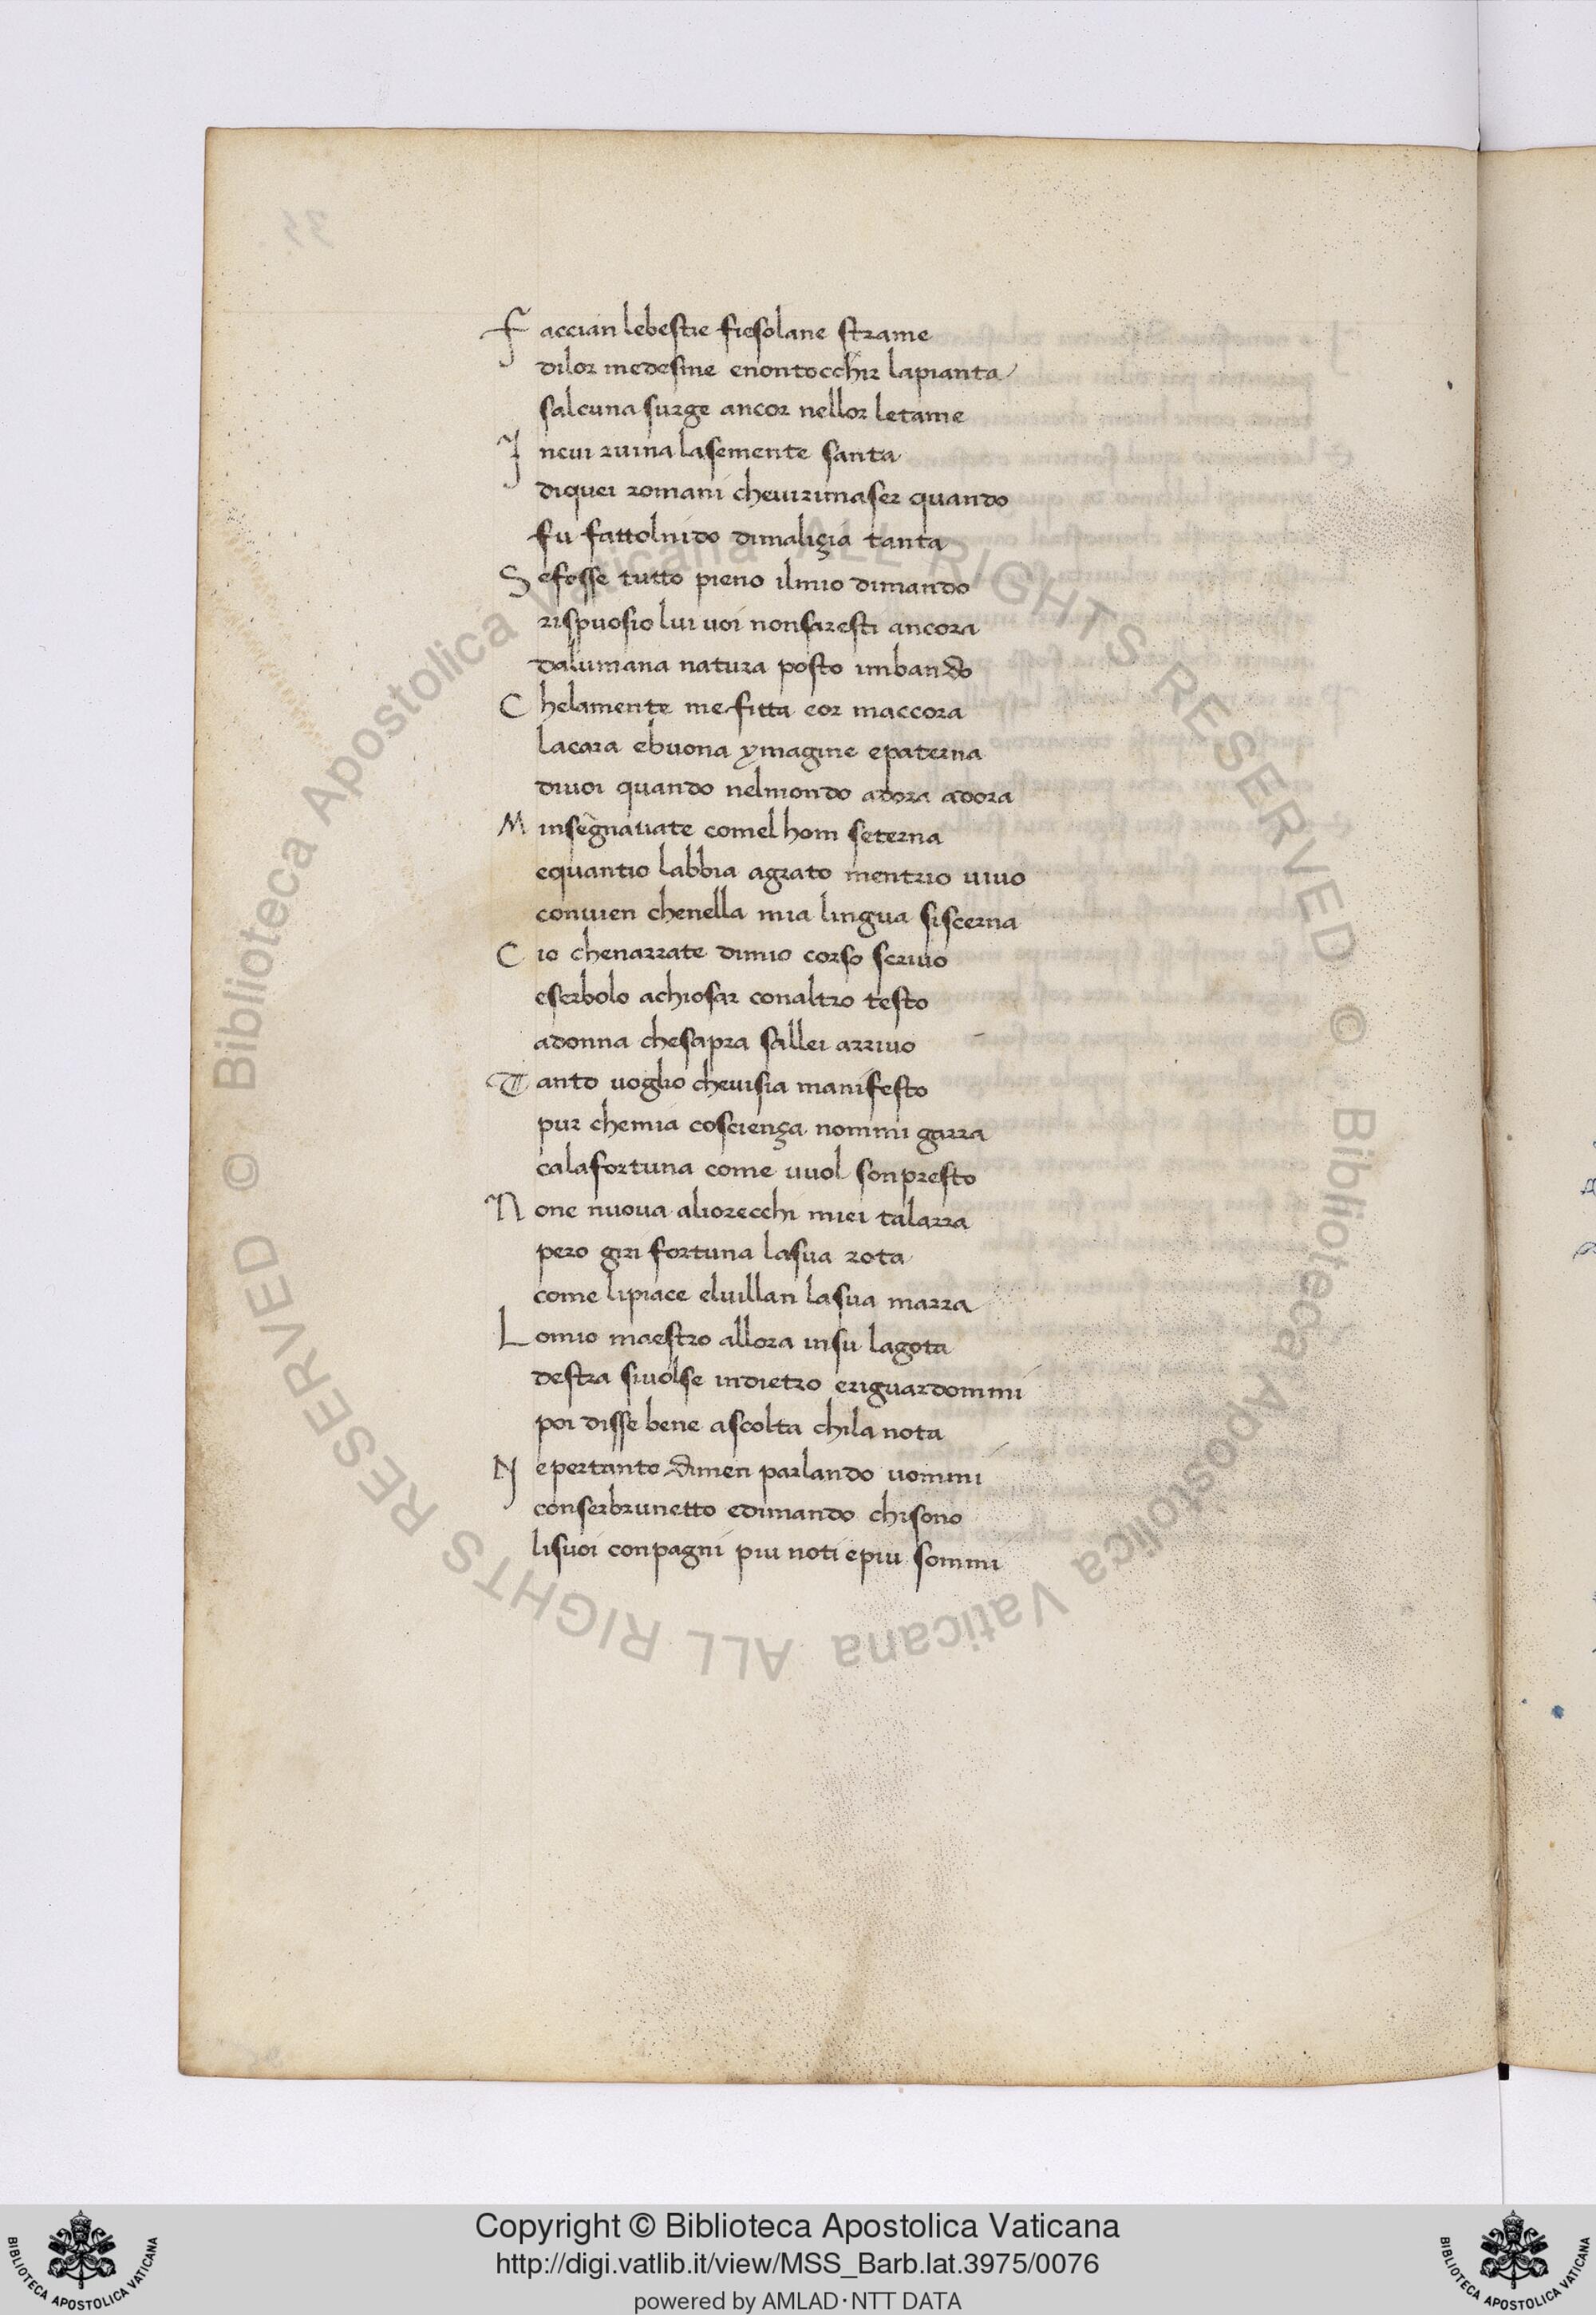 Faccian lebestie fiesolane strame
dilor medesme enontocchir lapianta
salcuna surge ancor nellor letame
Incui riuina lasemente santa
diquei romani cheuirimaser quando
fu fattolnido dimaliçia tanta
Sefosse tutto pieno ilmio dimando
rispuosio lui uoi nonsaresti ancora
dalumana natura posto imbando
Chelamente mefitta eor maccora
lacara ebuona ymagine epaterna
diuoi quando nelmondo adora adora
Minsegnauate comel hom seterna
equantio labbia agrato mentrio uiuo
conuien chenella mia lingua siscerna
Cio chenarrate dimio corso scriuo
eserbolo achiosar conaltro testo
adonna chesapra sallei arriuo
Tanto uoglio cheuisia manifesto
pur chemia cosciença nommi garra
calafortuna come uuol sonpresto
None nuoua aliorecchi miei talarra
pero giri fortuna lasua rota
come lipiace eluillan lasua marra
Lomio maestro allora insu lagota
destra siuolse indietro eriguardommi
poi disse bene ascolta chila nota
Nepertanto dimen parlando uommi
conserbrunetto edimando chisono
lisuoi conpagni piu noti epiu sommi
Copyright © Biblioteca Apostolica Vaticana
http://digi.vatlib.it/view/MSS_Barb.lat.3975/0076
powered by AMLAD·NTT DATA
© Biblioteca Apostolica Vaticana ALL RIGHTS RESERVED
© Biblioteca Apostolica Vaticana ALL RIGHTS RESERVED
BIBLIOTECA APOSTOLICA VATICANA
BIBLIOTECA APOSTOLICA VATICANA